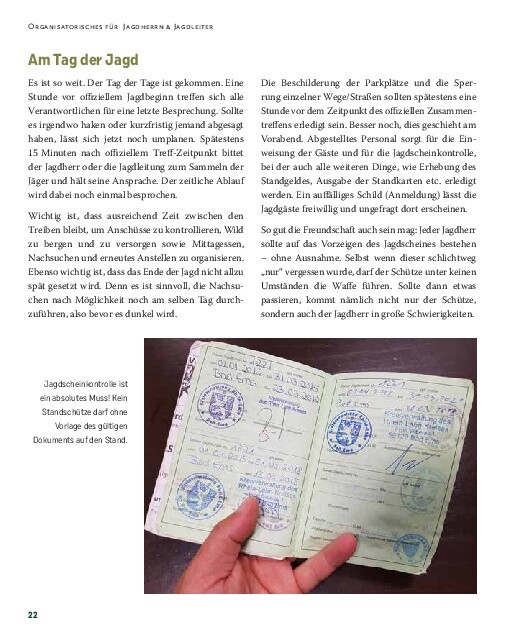 Organisatorisches für Jagdherrn & Jagdleiter
Am Tag der Jagd
Es ist so weit. Der Tag der Tage ist gekommen. Eine
Stunde vor offiziellem Jagdbeginn treffen sich alle
Verantwortlichen für eine letzte Besprechung. Sollte
es irgendwo haken oder kurzfristig jemand abgesagt
haben, lässt sich jetzt noch umplanen. Spätestens
15 Minuten nach offiziellem Treff-Zeitpunkt bittet
der Jagdherr oder die Jagdleitung zum Sammeln der
Jäger und hält seine Ansprache. Der zeitliche Ablauf
wird dabei noch einmal besprochen.
Wichtig ist, dass ausreichend Zeit zwischen den
Treiben bleibt, um Anschüsse zu kontrollieren, Wild
zu bergen und zu versorgen sowie Mittagessen,
Nachsuchen und erneutes Anstellen zu organisieren.
Ebenso wichtig ist, dass das Ende der Jagd nicht allzu
spät gesetzt wird. Denn es ist sinnvoll, die Nachsu-
chen nach Möglichkeit noch am selben Tag durch-
zuführen, also bevor es dunkel wird.
Die Beschilderung der Parkplätze und die Sper-
rung einzelner Wege/Straßen sollten spätestens eine
Stunde vor dem Zeitpunkt des offiziellen Zusammen-
treffens erledigt sein. Besser noch, dies geschieht am
Vorabend. Abgestelltes Personal sorgt für die Ein-
weisung der Gäste und für die Jagdscheinkontrolle,
bei der auch alle weiteren Dinge, wie Erhebung des
Standgeldes, Ausgabe der Standkarten etc. erledigt
werden. Ein auffälliges Schild (Anmeldung) lässt die
Jagdgäste freiwillig und ungefragt dort erscheinen.
So gut die Freundschaft auch sein mag: Jeder Jagdherr
sollte auf das Vorzeigen des Jagdscheines bestehen
– ohne Ausnahme. Selbst wenn dieser schlichtweg
„nur“ vergessen wurde, darf der Schütze unter keinen
Umständen die Waffe führen. Sollte dann etwas
passieren, kommt nämlich nicht nur der Schütze,
sondern auch der Jagdherr in große Schwierigkeiten.
Jagdscheinkontrolle ist
ein absolutes Muss! Kein
Standschütze darf ohne
Vorlage des gültigen
Dokuments auf den Stand.
Bad Ems
Kreisverwaltung des
Rhein-Lahn-Kreises
22